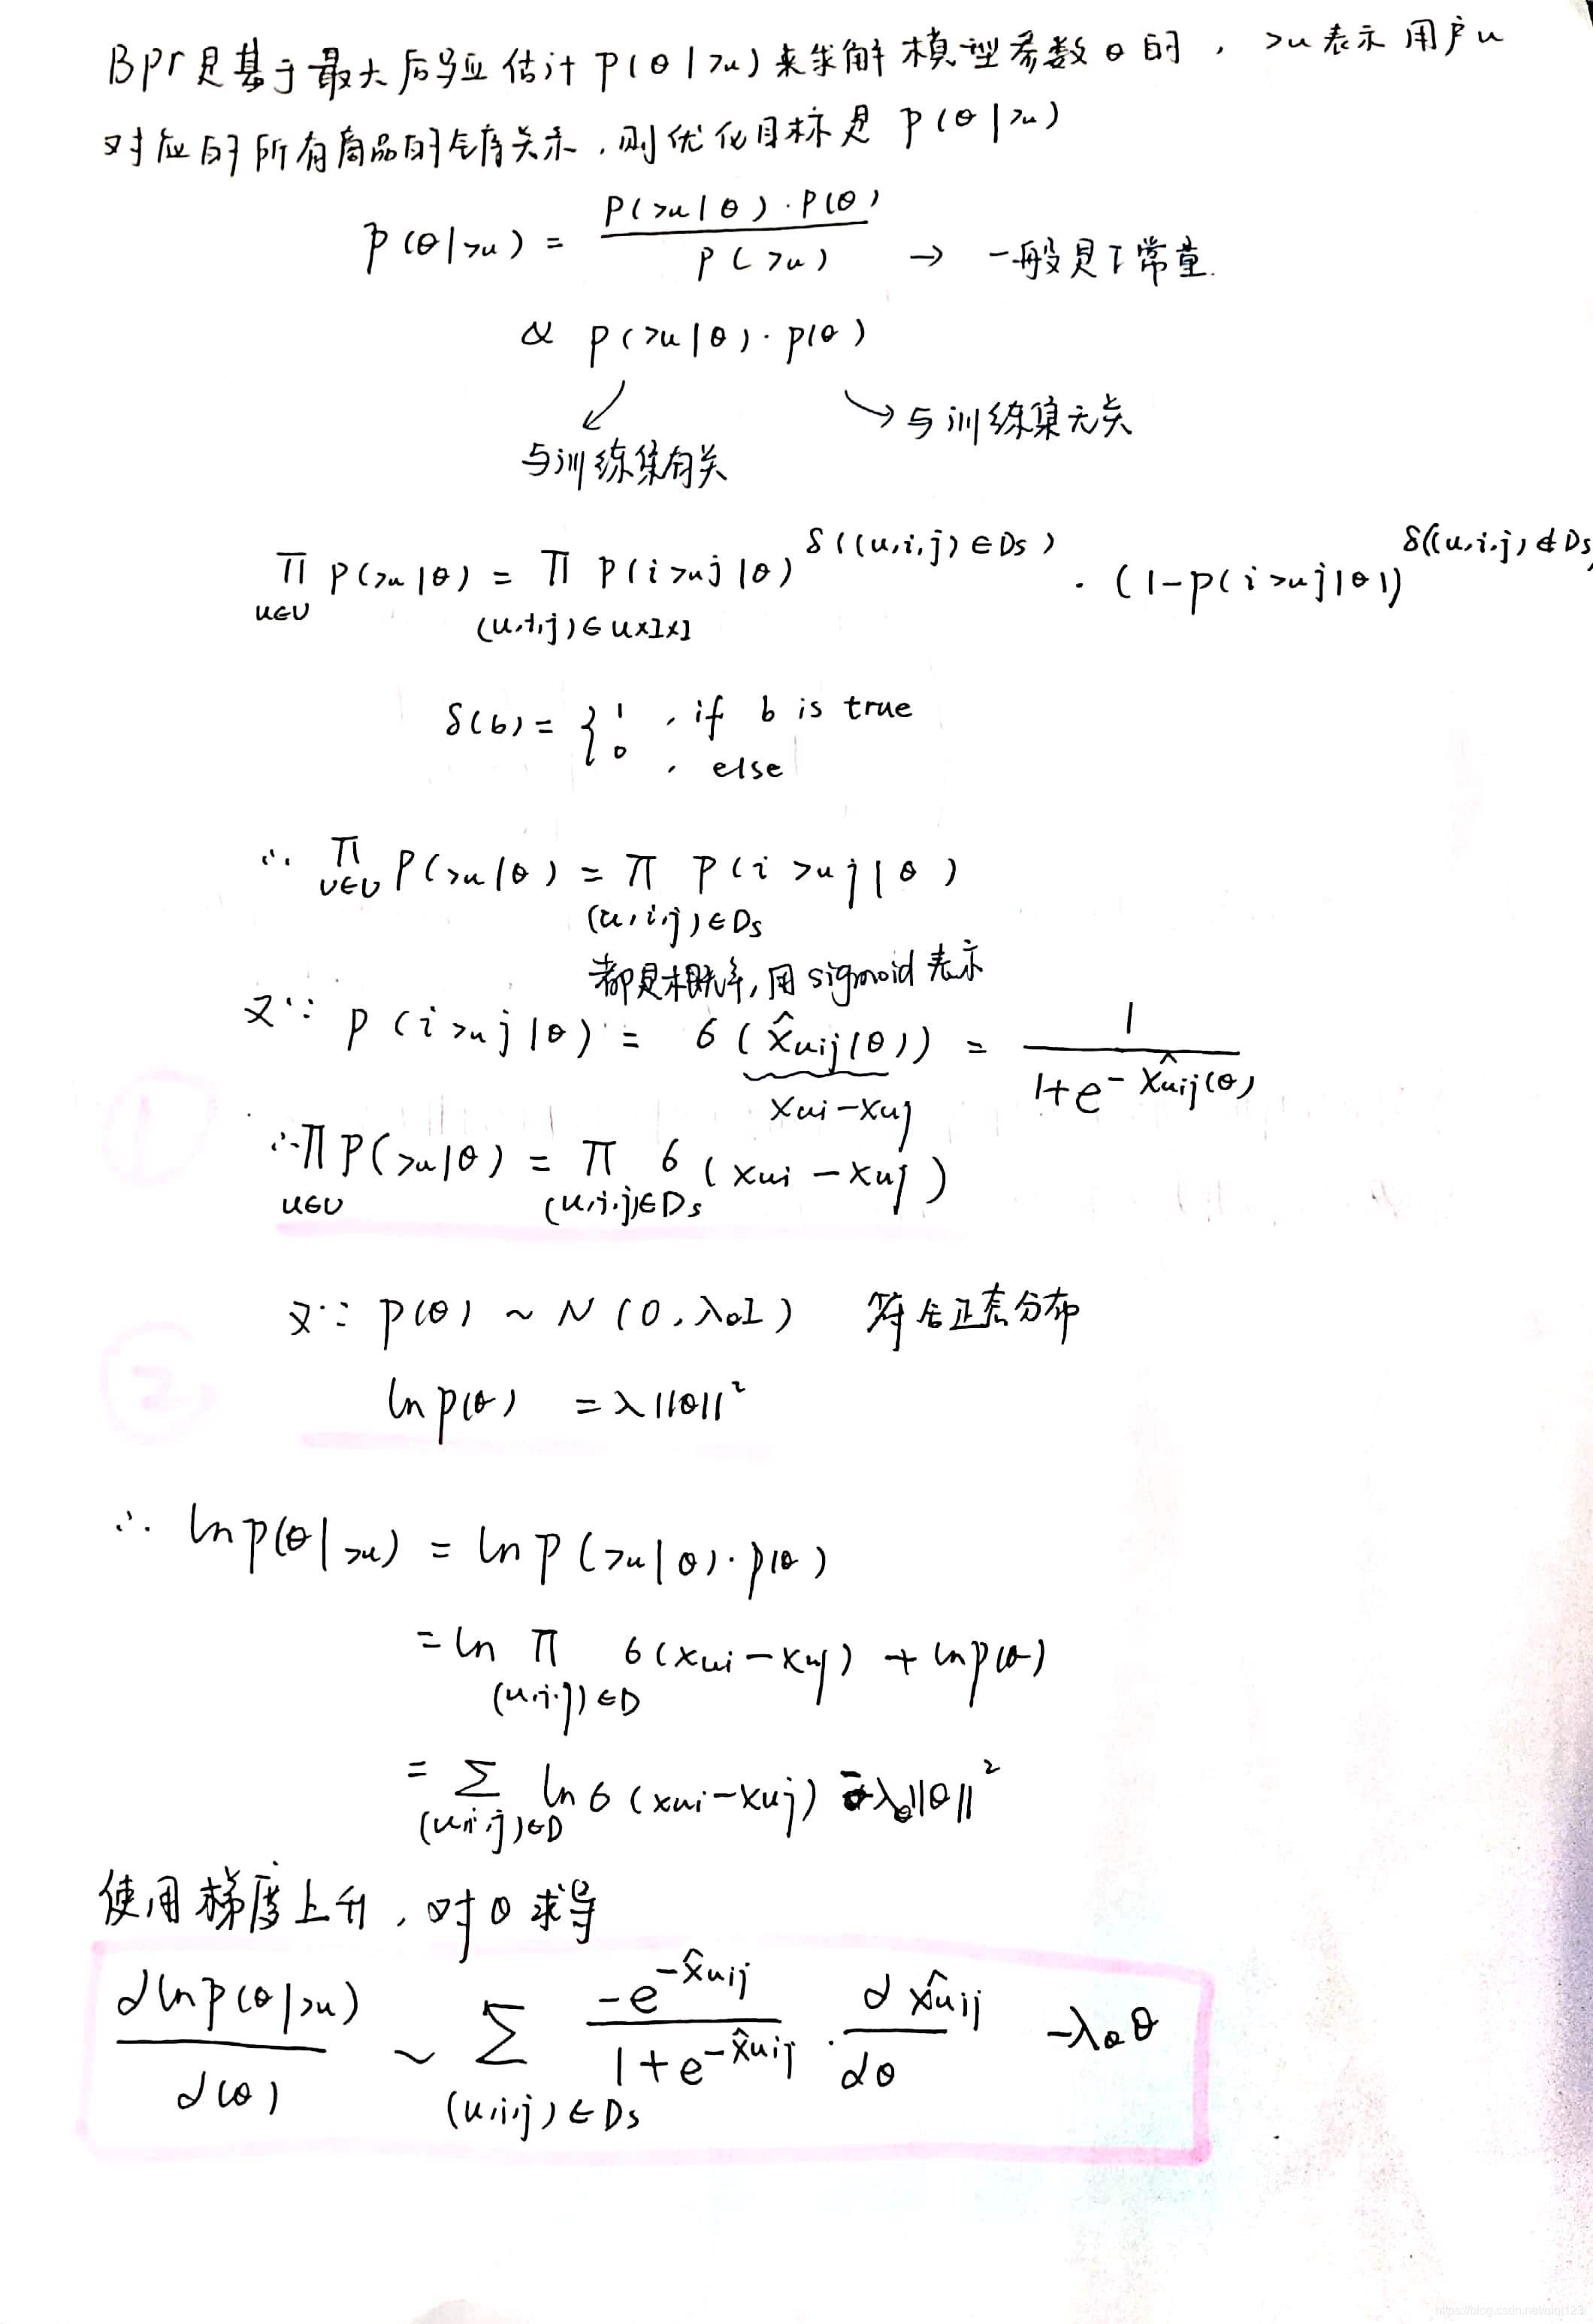 Bpr是基于最大后验估计 P(θ|>u) 来求解模型参数θ的，>u表示用户u
对应的所有商品的全序关系，则优化目标是 P(θ|>u)
P(θ|>u) = P(>u|θ)·P(θ) / P(>u) → 一般是个常量.
∝ P(>u|θ)·p(θ)
→ 与训练集无关
与训练集有关
∏_{u∈U} P(>u|θ) = ∏_{(u,i,j)∈U×I×I} P(i>uj|θ)^{δ((u,i,j)∈Ds)} · (1-p(i>uj|θ))^{δ((u,i,j)∉Ds)}
δ(b) = { 1 , if b is true
0 , else
∴ ∏_{u∈U} P(>u|θ) = ∏_{(u,i,j)∈Ds} P(i>uj|θ)
都是概率,用sigmoid表示
又∵ P(i>uj|θ) = 6(x̂uij(θ)) = 1 / (1+e^{-x̂uij(θ)})
xui-xuj
∴∏_{u∈U} P(>u|θ) = ∏_{(u,i,j)∈Ds} 6(xui-xuj)
①
又∵ p(θ) ~ N(0,λθI) 符合正态分布
②
ln p(θ) = λ||θ||²
∴ ln p(θ|>u) = ln P(>u|θ)·p(θ)
= ln ∏_{(u,i,j)∈D} 6(xui-xuj) + ln p(θ)
= Σ_{(u,i,j)∈D} ln 6(xui-xuj) - λθ||θ||²
使用梯度上升，对θ求导
∂ln p(θ|>u) / ∂(θ) ~ Σ_{(u,i,j)∈Ds} -e^{-x̂uij} / (1+e^{-x̂uij}) · ∂x̂uij / ∂θ -λθθ